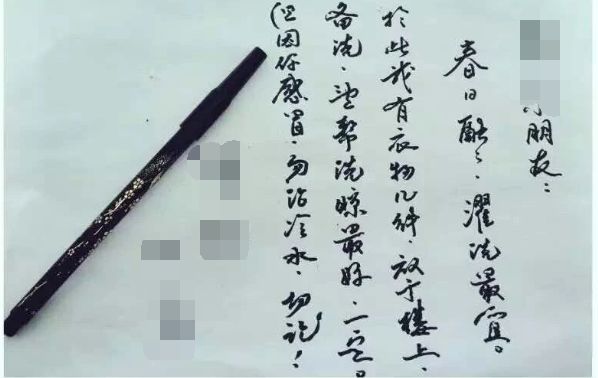 小朋友：
春日融々，濯洗最宜。
於此我有衣物几件，放于楼上，
备洗，望帮洗晾最好，一定。
(但因你感冒，勿沾冷水，切记！